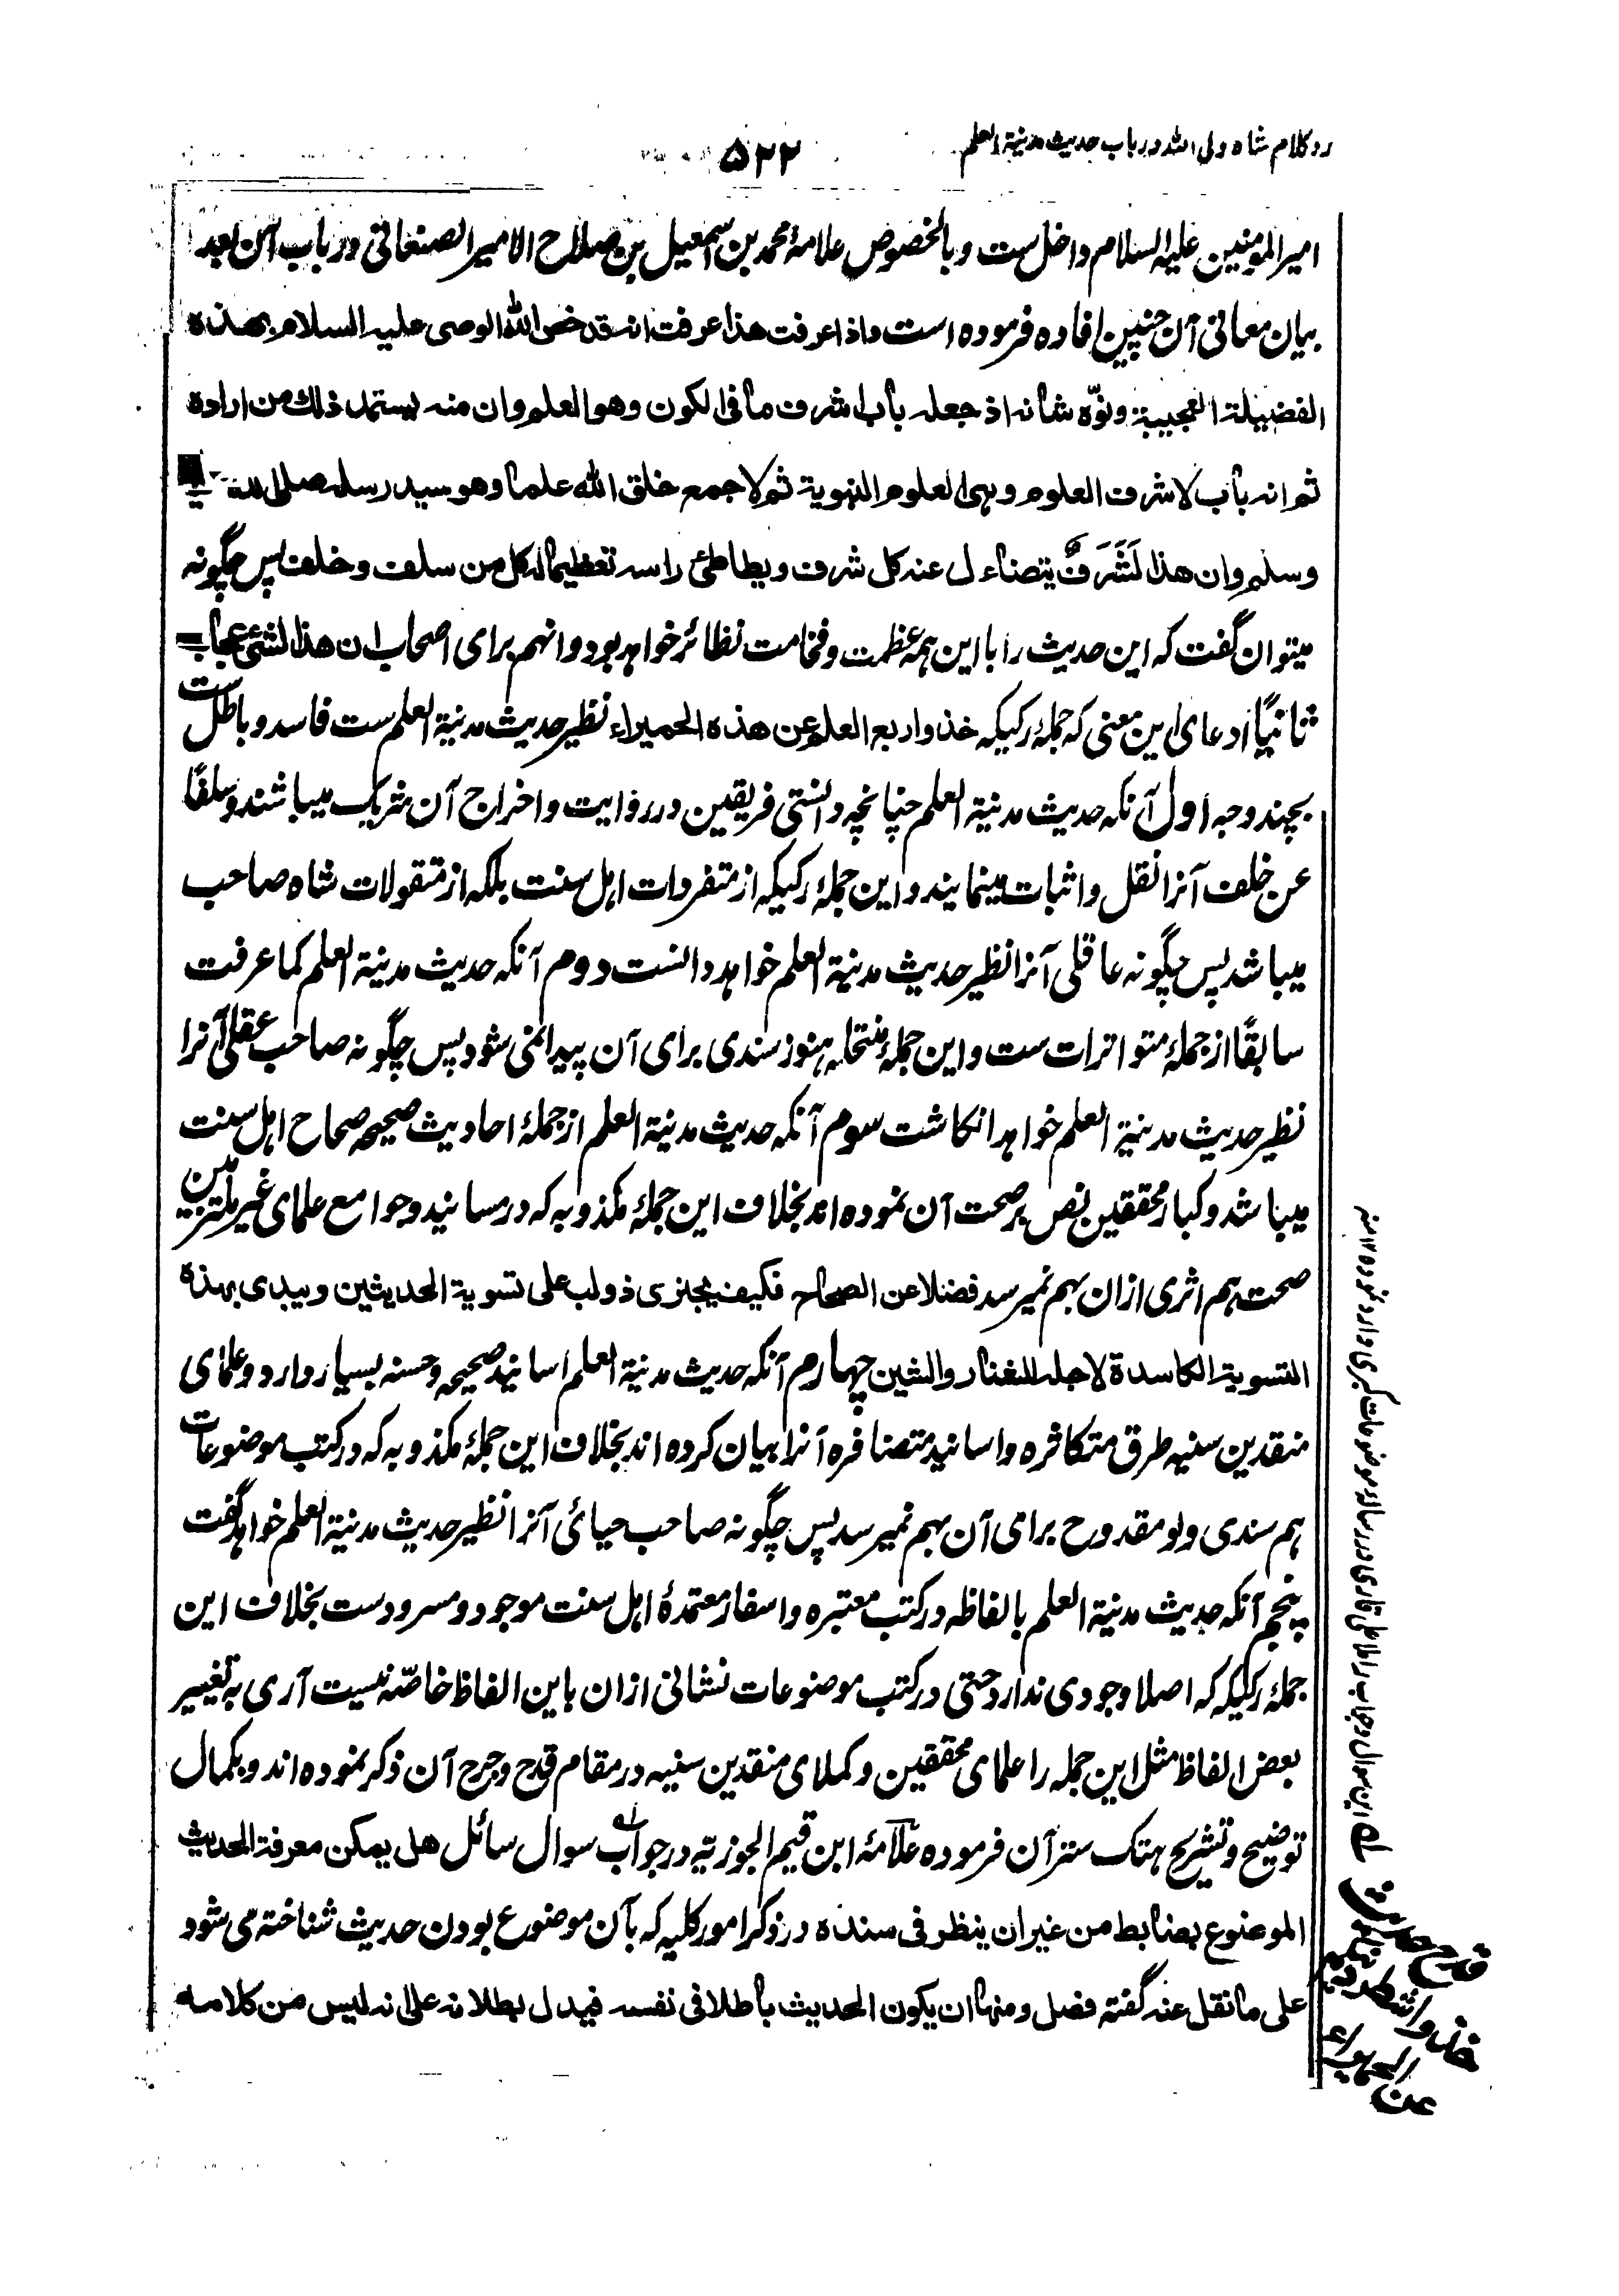 رد کلام شاه ولی الله در باب حدیث مدینة العلم
۵۲۲
امیرالمومنین علیه السلام داخل ست و بالخصوص علامهٔ محمد بن اسمعیل بن صلاح الامیر الصنعانی در باب این بعد
بیان معانی آن چنین افاده فرموده است واذا عرفت هذا عرفت انه قد خص الله الوصی علیه السلام بهذه
الفضیلة العجیبة ونوّه شانه اذ جعله باب اشرف ما فی الکون وهو العلم وان منه یستمد ذلك من اراده
ثم انه باب لاشرف العلوم وهی العلوم النبویة ثم لاجمع خلق الله علما وهو سید رسله صلی الله
وسلم وان هذا لَشَرَفٌ یتضاءل عنه کل شرف ویطاطئ راسه تعظیما له کل من سلف وخلف پس چگونه
میتوان گفت که این حدیث را با این همه عظمت و فخامت نظائر خواهد بود و انهم برای اصحاب ان هذا لشئ عجاب
ثانیًا ادعای این معنی که جملهٔ رکیکه خذوا ربع العلم عن هذه الحمیراء نظیر حدیث مدینة العلم ست فاسد و باطل ست
بچند وجه اول آنکه حدیث مدینة العلم چنانچه دانستی فریقین در روایت و اخراج آن شریک میباشند و سلفًا
عن خلف آنرا نقل و اثبات مینمایند و این جملهٔ رکیکه از متفردات اهل سنت بلکه از متقولات شاه صاحب
میباشد پس چگونه عاقلی آنرا نظیر حدیث مدینة العلم خواهد دانست دوم آنکه حدیث مدینة العلم کما عرفت
سابقًا از جملهٔ متواترات ست و این جملهٔ منتحله هنوز سندی برای آن پیدا نمی شود پس چگونه صاحب عقلی آنرا
نظیر حدیث مدینة العلم خواهد انکاشت سوم آنکه حدیث مدینة العلم از جملهٔ احادیث صحیحه صحاح اهل سنت
میباشد و کبار محققین نص بر صحت آن نموده اند بخلاف این جملهٔ مکذوبه که در مسانید و جوامع علمای غیر ملتزمین
صحت هم اثری ازان بهم نمیرسد فضلا عن الصحاح فکیف یجتری ذو لب علی تسویة الحدیثین ویبدی بهذه
التسویة الکاسدة لاجله للشنار والشین چهارم آنکه حدیث مدینة العلم اسانید صحیحه و حسنه بسیار دارد و علمای
منقدین سنیه طرق متکاثره و اسانید متضافره آنرا بیان کرده اند بخلاف این جملهٔ مکذوبه که در کتب موضوعات
هم سندی ولو مقدوح برای آن بهم نمیرسد پس چگونه صاحب حیائی آنرا نظیر حدیث مدینة العلم خواهد گفت
پنجم آنکه حدیث مدینة العلم بالفاظه در کتب معتبره و اسفار معتمدهٔ اهل سنت موجود و مسرودست بخلاف این
جملهٔ رکیکه که اصلا وجودی ندارد حتی در کتب موضوعات نشانی ازان باین الفاظ خاصّه نیست آری به تغییر
بعض الفاظ مثل این جمله را علمای محققین و کملای منقدین سنیه در مقام قدح و جرح آن ذکر نموده اند و بکمال
توضیح و تشریح هتک ستر آن فرموده علامهٔ ابن قیم الجوزیّه در جواب سوال سائل هل یمکن معرفة الحدیث
الموضوع بضابط من غیر ان ینظر فی سنده در ذکر امور کلیه که بآن موضوع بودن حدیث شناخته می شود
علی ما نقل عنه گفته فصل ومنها ان یکون الحدیث باطلا فی نفسه فیدل بطلانه علی انه لیس من کلامه
له این سوال و جواب را ملا علی قاری در رساله موضوعات کبری وارد نموده ۱۲ منه
قدح حدیث
خذوا شطر دینکم
عن الحمیراء